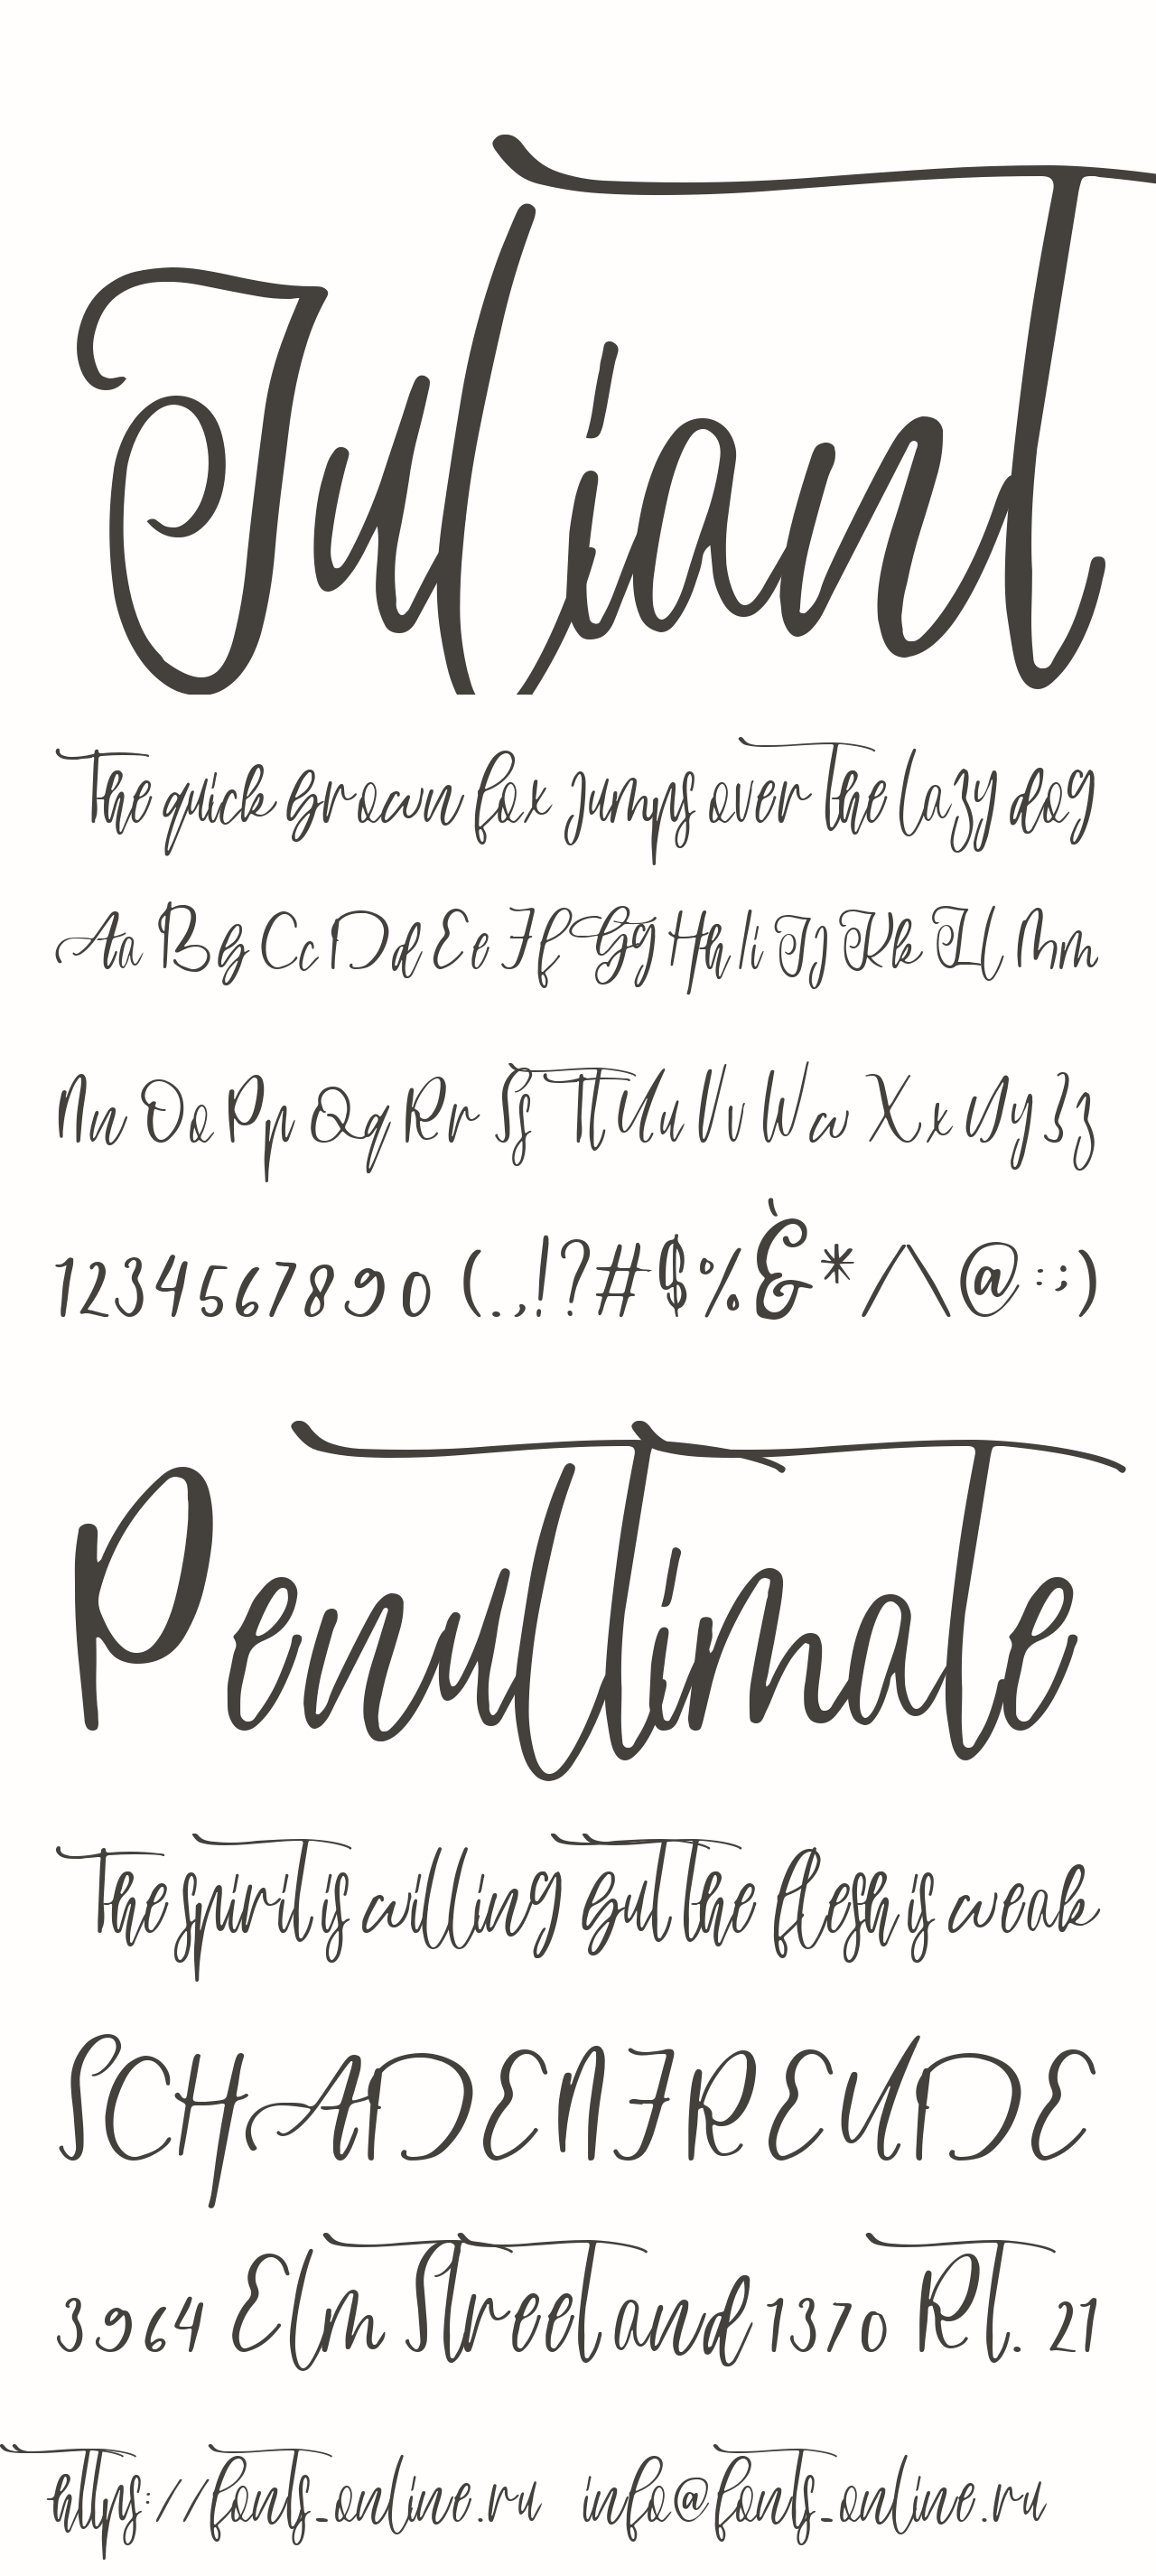 Juliant
The quick brown fox jumps over the lazy dog
Aa Bb Cc Dd Ee Ff Gg Hh Ii Jj Kk Ll Mm
Nn Oo Pp Qq Rr Ss Tt Uu Vv Ww Xx Yy Zz
1234567890 (.,!?#$%&*/\@:;)
Penultimate
The spirit is willing but the flesh is weak
SCHADENFREUDE
3964 Elm Street and 1370 Rt. 21
https://fonts-online.ru info@fonts-online.ru